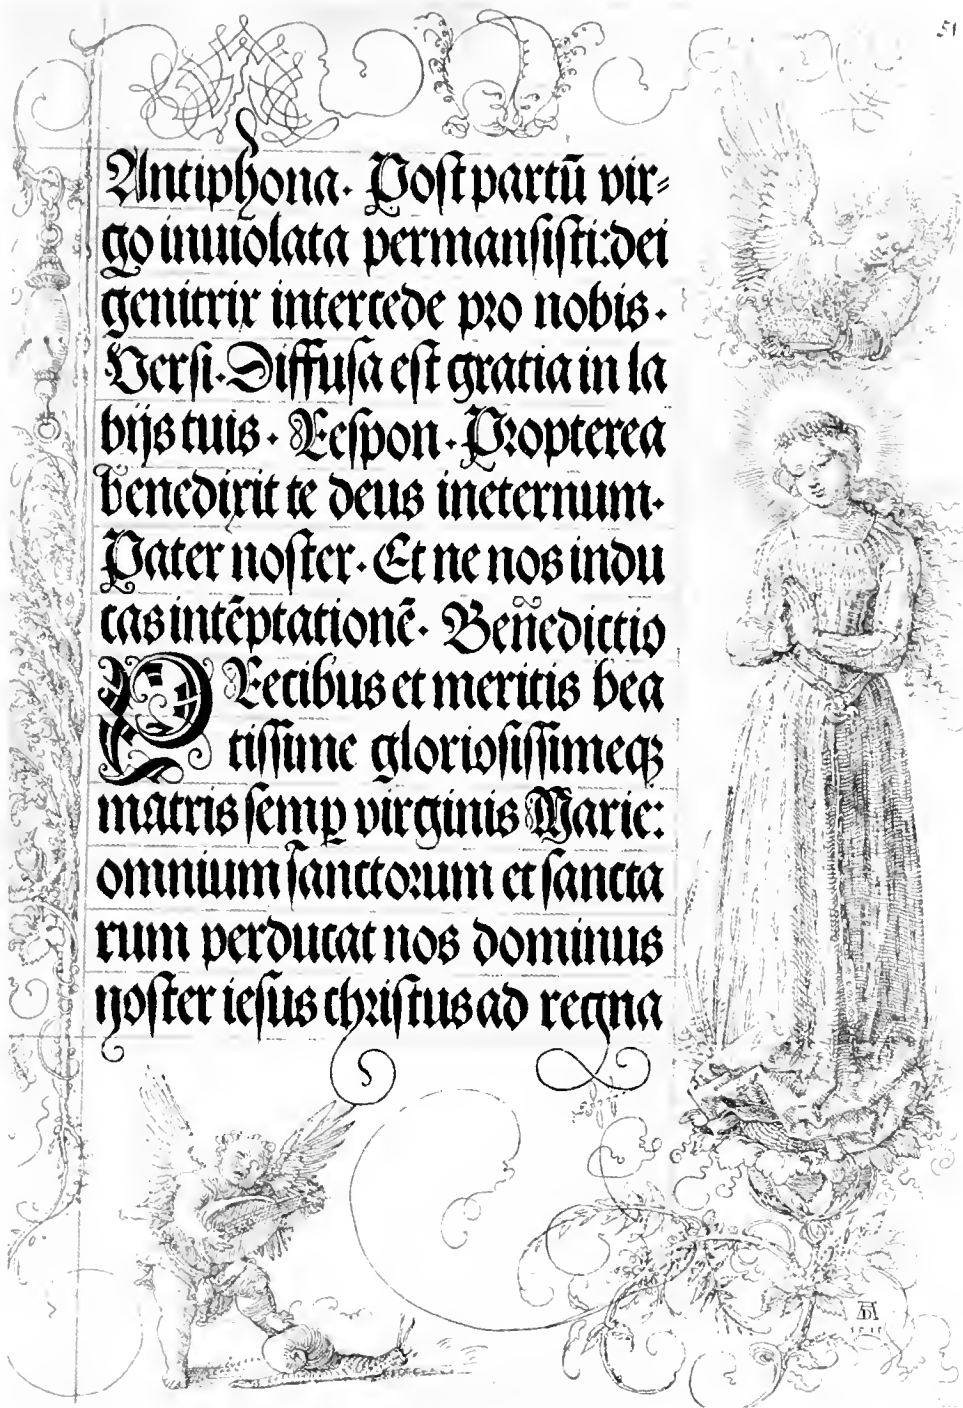 51
Antiphona. Post partū vir⸗
go inuiolata permansisti: dei
genitrix intercede pro nobis.
Versi. Diffusa est gratia in la
bijs tuis. Respon. Propterea
benedixit te deus ineternum.
Pater noster. Et ne nos indu
cas intēptationē. Benedictio
PRecibus et meritis bea
tissime gloriosissimeqȝ
matris semꝑ virginis Marie:
omnium sanctorum et sancta
rum perducat nos dominus
noster iesus christus ad regna
AD